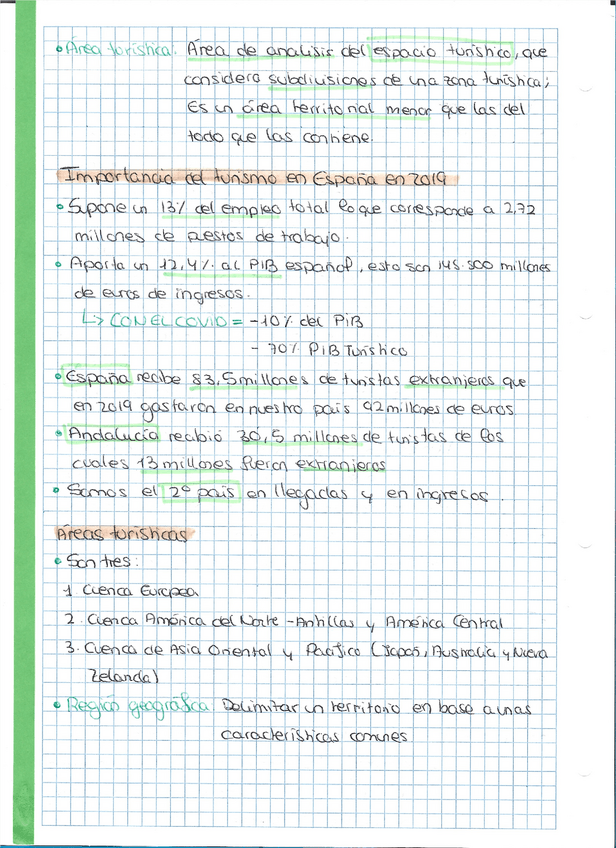 • Área turística: Área de analisis del espacio turístico, que
considera subdivisiones de una zona turística;
Es un área territorial menor que las del
todo que las contiene.
Importancia del turismo en España en 2019
• Supone un 13% del empleo total lo que corresponde a 2,72
millones de puestos de trabajo.
• Aporta un 12,4% al PIB español, esto son 145.500 millones
de euros de ingresos.
↳ CON EL COVID = -10% del PIB
- 70% PIB Turístico
• España recibe 83,5 millones de turistas extranjeros que
en 2019 gastaron en nuestro país 92 millones de euros
• Andalucía recibió 30,5 millones de turistas de los
cuales 13 millones fueron extranjeros
• Somos el 2º país en llegadas y en ingresos.
Áreas turísticas
• Son tres:
1 Cuenca Europea
2. Cuenca América del Norte - Antillas y América Central
3. Cuenca de Asia Oriental y Pacífico (Japón, Australia y Nueva
Zelanda)
• Región geográfica: Delimitar un territorio en base a unas
características comunes